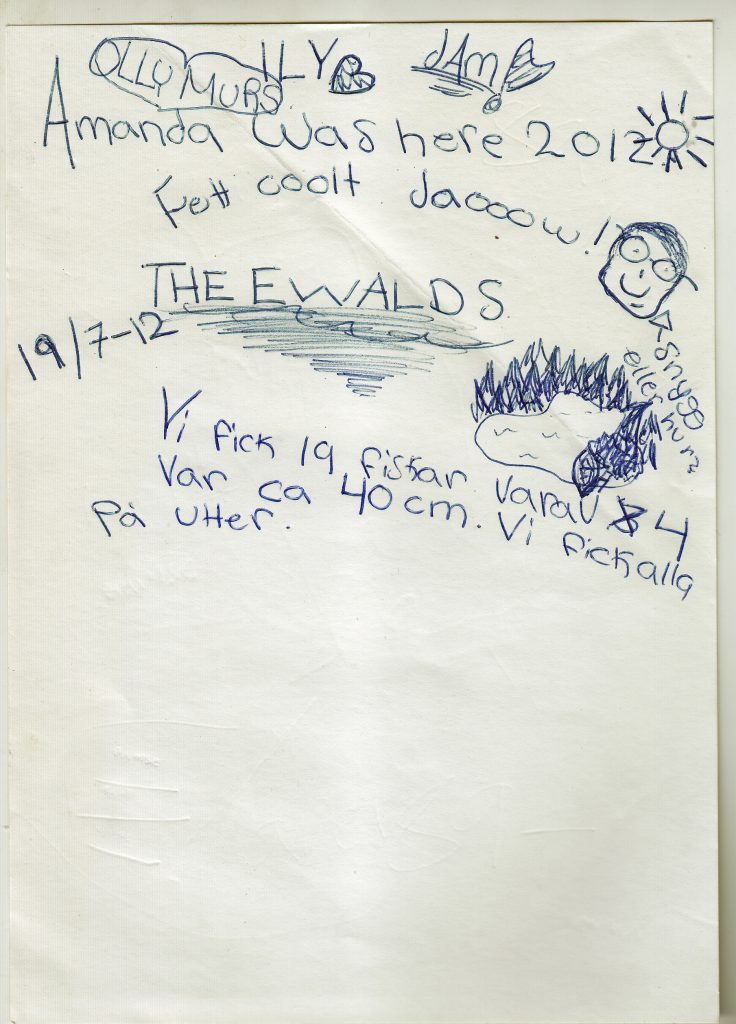 OLLY MURS ILY
JAM
Amanda was here 2012
Fett coolt daooow!
THE EWALDS
19/7-12
Snygg
eller hur?
Vi fick 19 fiskar varav 4
var ca 40 cm. Vi fick alla
på utter.